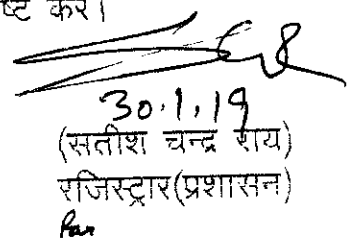 करें।
30.1.19
(सतीश चन्द्र राय)
रजिस्ट्रार(प्रशासन)